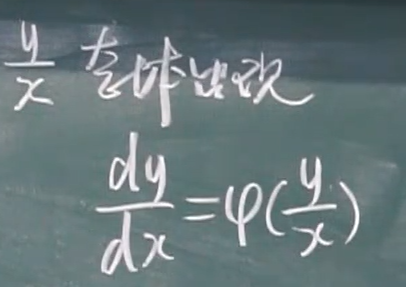 y/x 整体出现
dy/dx = φ(y/x)